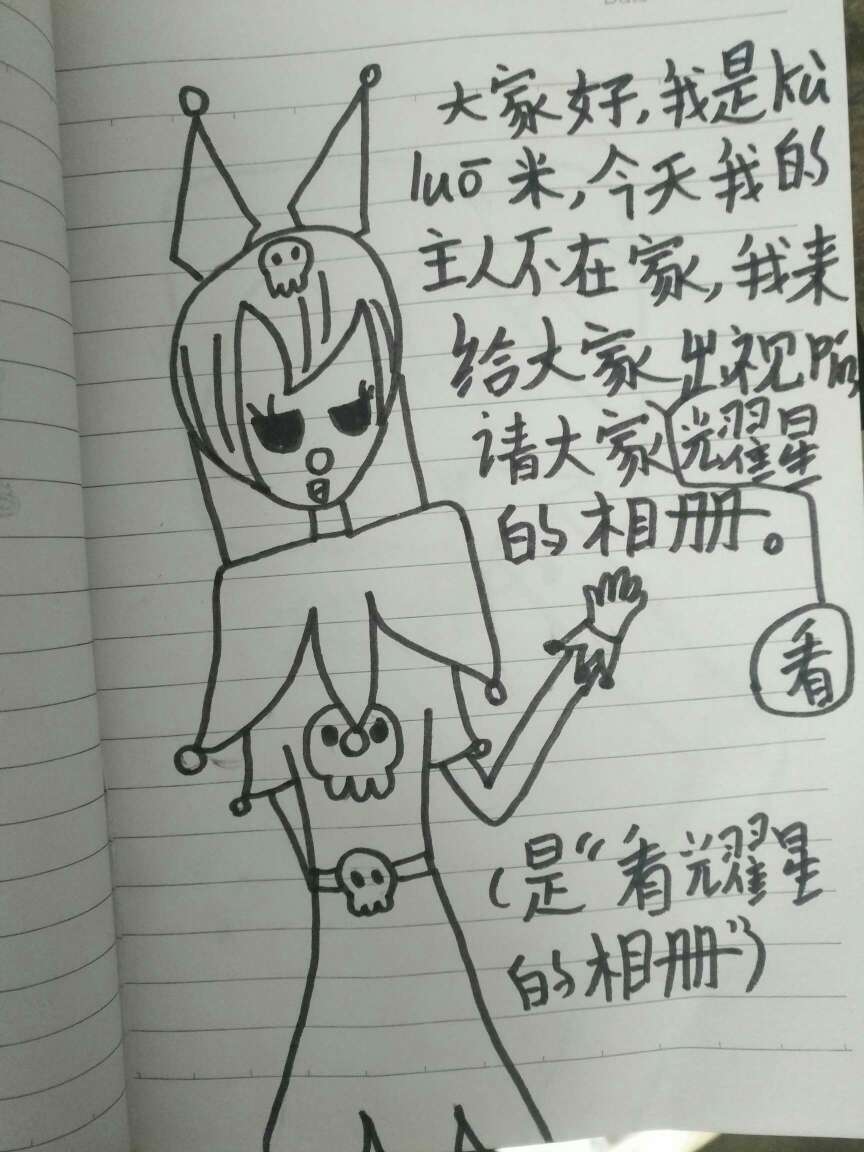 大家好,我是kù
luō米,今天我的
主人不在家,我来
给大家出视pín,
请大家耀星
的相册。
看
(是“看耀星
的相册”)